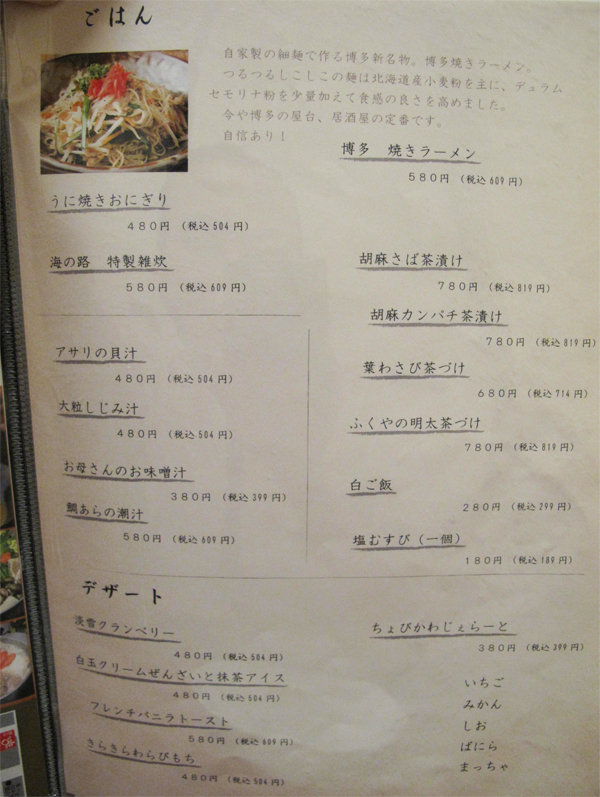 ごはん
自家製の細麺で作る博多新名物。博多焼きラーメン。
つるつるしこしこの麺は北海道産小麦粉を主に、デュラム
セモリナ粉を少量加えて食感の良さを高めました。
今や博多の屋台、居酒屋の定番です。
自信あり！
博多　焼きラーメン
５８０円 （税込609円）
うに焼きおにぎり
４８０円 （税込504円）
海の路　特製雑炊
５８０円 （税込609円）
胡麻さば茶漬け
７８０円 （税込819円）
胡麻カンパチ茶漬け
７８０円 （税込819円）
葉わさび茶づけ
６８０円 （税込714円）
ふくやの明太茶づけ
７８０円 （税込819円）
白ご飯
２８０円 （税込299円）
塩むすび（一個）
１８０円 （税込189円）
アサリの貝汁
４８０円 （税込504円）
大粒しじみ汁
４８０円 （税込504円）
お母さんのお味噌汁
３８０円 （税込399円）
鯛あらの潮汁
５８０円 （税込609円）
デザート
淡雪クランベリー
４８０円 （税込504円）
白玉クリームぜんざいと抹茶アイス
４８０円 （税込504円）
フレンチバニラトースト
５８０円 （税込609円）
きらきらわらびもち
４８０円 （税込504円）
ちょびかわじぇらーと
３８０円 （税込399円）
いちご
みかん
しお
ばにら
まっちゃ